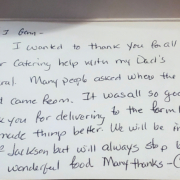 I
I wanted to thank you for all
r catering help with my Dad's
ral. Many people asked where the
d came from. It was all so goo
k you for delivering to the farm
made things better. We will be in
Jackson but will always stop b
wonderful food Many thanks -